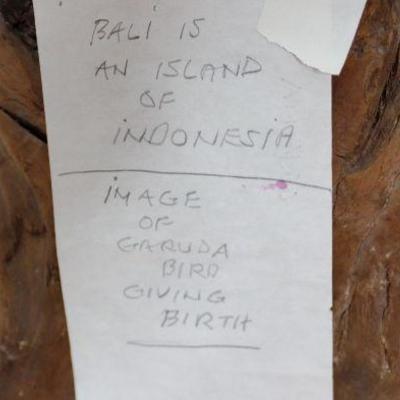 BALI IS
AN ISLAND
OF
INDONESIA
IMAGE
OF
GARUDA
BIRD
GIVING
BIRTH